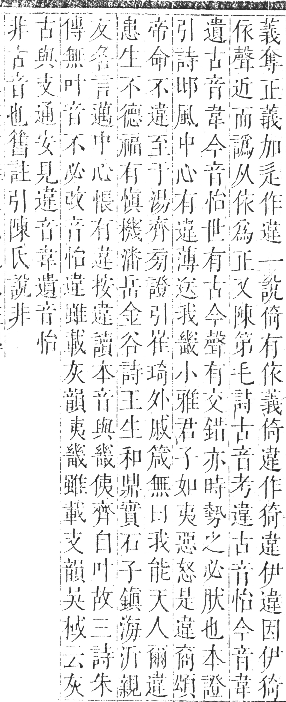 義奪正義加辵作違一說倚有依義倚違作猗違伊違因伊猗
依聲近而譌从依為正又陳第毛詩古音考違古音怡今音韋
遺古音韋今音怡世有古今聲有交錯亦時勢之必肰也本證
引詩邶風中心有違薄送我畿小雅君子如夷惡怒是違商頌
帝命不違至于湯齊㫄證引崔琦外戚箴無曰我能天人爾違
患生不德福有愼機潘岳金谷詩王生和鼎實石子鎭海沂親
友各言邁中心悵有違按違讀本音與畿夷齊自叶故三詩朱
傳無叶音不必改音怡違雖載灰韻夷畿雖載支韻吳棫云灰
古與支通安見違音韋遺音怡
非古音也舊註引陳氏說非